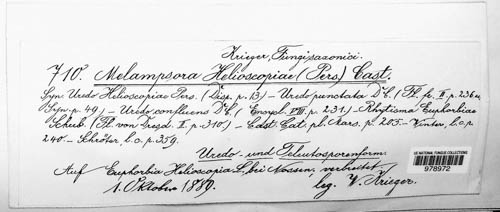 Krieger, Fungi saxonici.
710. Melampsora Helioscopiae (Pers) Cast.
Syn. Uredo Helioscopiae Pers. (Disp. p. 13) – Uredo punctata DC. (Fl. fr. II. p. 236 u.
Syn. p. 49) – Uredo confluens DC. (Encycl. VIII. p. 231.) – Rhytisma Euphorbiae
Schub. (Fl. von Dresd. II. p. 310.) – Cast. Cat. pl. Mars. p. 205 – Winter, l. c. p.
240 – Schröter, l. c. p. 359.
Uredo- und Teleutosporenform.
Auf Euphorbia Helioscopia L. bei Nossen, verbreitet
1. Oktober 1889. leg. W. Krieger.
US NATIONAL FUNGUS COLLECTIONS
978972